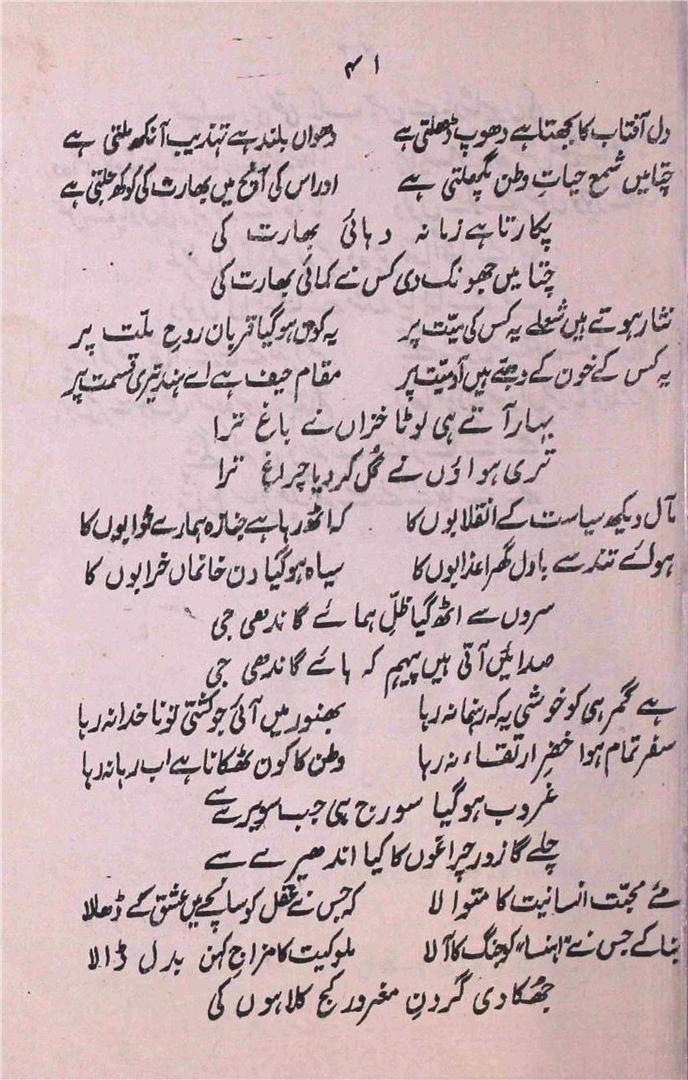 ۴۱
دل آفتاب کا بجھتا ہے دھوپ ڈھلتی ہے دھواں بلند ہے تہذیب آنکھ ملتی ہے
چتا میں شمع حیاتِ وطن پگھلتی ہے اور اس کی آنچ میں بھارت کی کوکھ جلتی ہے
پکارتا ہے زمانہ دہائی بھارت کی
چتا میں جھونک دی کس نے کمائی بھارت کی
نثار ہوتے ہیں شعلے یہ کس کی میّت پر یہ کون ہو گیا قربان روحِ ملّت پر
یہ کس کے خون کے دھبّے ہیں آدمیّت پر مقام حیف ہے اے ہند تیری قسمت پر
بہار آتے ہی لوٹا خزاں نے باغ ترا
تری ہواؤں نے گُل کر دیا چراغ ترا
مآل دیکھ سیاست کے انقلابوں کا کہ اٹھ رہا ہے جنازہ ہمارے خوابوں کا
ہوائے تند سے بادل گھرا عذابوں کا سیاہ ہو گیا دن خانماں خرابوں کا
سروں سے اٹھ گیا ظلِّ ہمائے گاندھی جی
صدائیں آتی ہیں پیہم کہ ہائے گاندھی جی
ہے گمرہی کو خوشی یہ کہ رہنما نہ رہا بھنور میں آئی جو کشتی تو ناخدا نہ رہا
سفر تمام ہوا خضرِ ارتقاء نہ رہا وطن کا کون ٹھکانا ہے اب رہا نہ رہا
غروب ہو گیا سورج ہی جب سویرے سے
چلے گا زور چراغوں کا کیا اندھیرے سے
مئے محبّت انسانیت کا متوالا کہ جس نے عقل کو سانچے میں عشق کے ڈھالا
بنا کے جس نے "اہنسا" کو جنگ کا آلا ملوکیت کا مزاج کہن بدل ڈالا
جھکا دی گردنِ مغرور کج کلاہوں کی